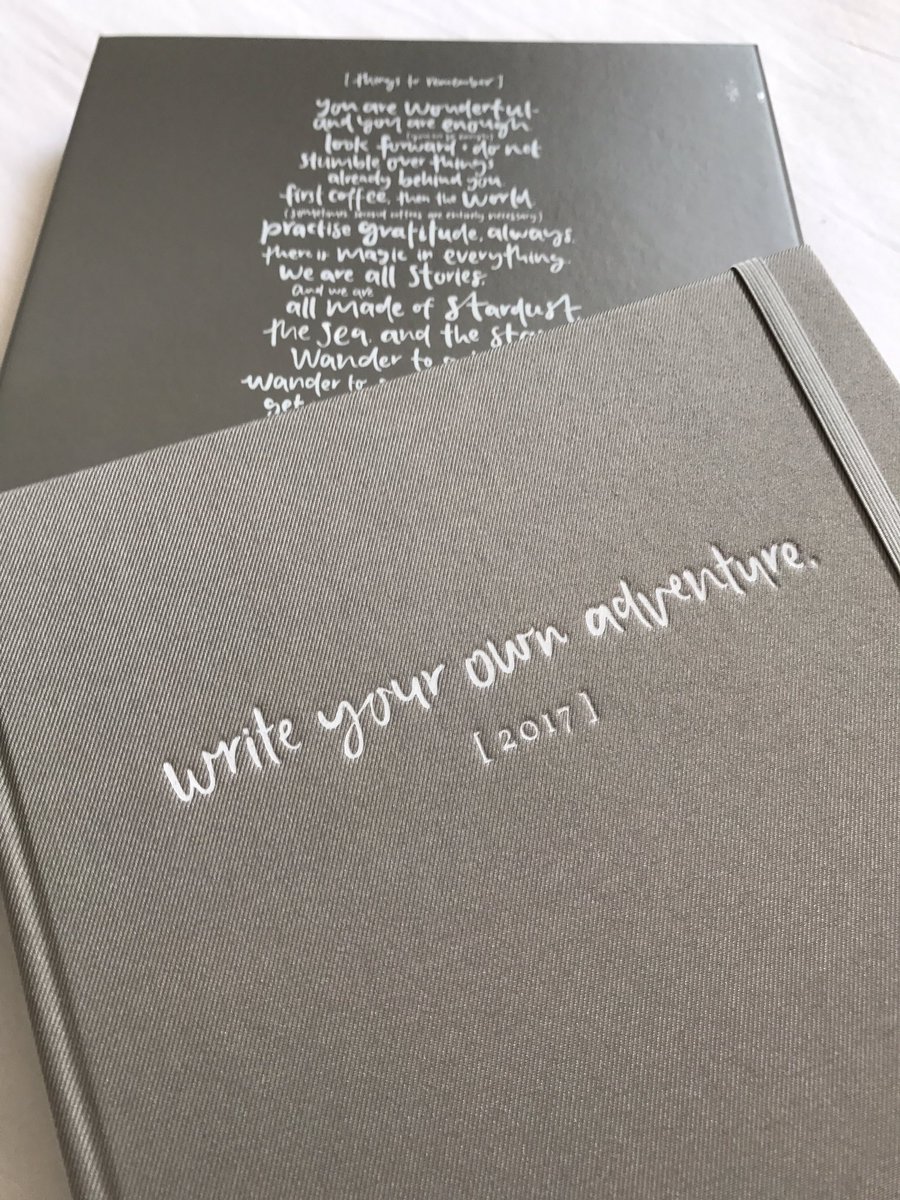 [things to remember]
you are wonderful
and you are enough
look forward · do not
stumble over things
already behind you
first coffee, then the world
(sometimes second coffees are entirely necessary)
practise gratitude, always.
there is magic in everything.
we are all stories.
and we are
all made of stardust
the sea, and the
Wander to
wander to
get
write your own adventure.
[2017]